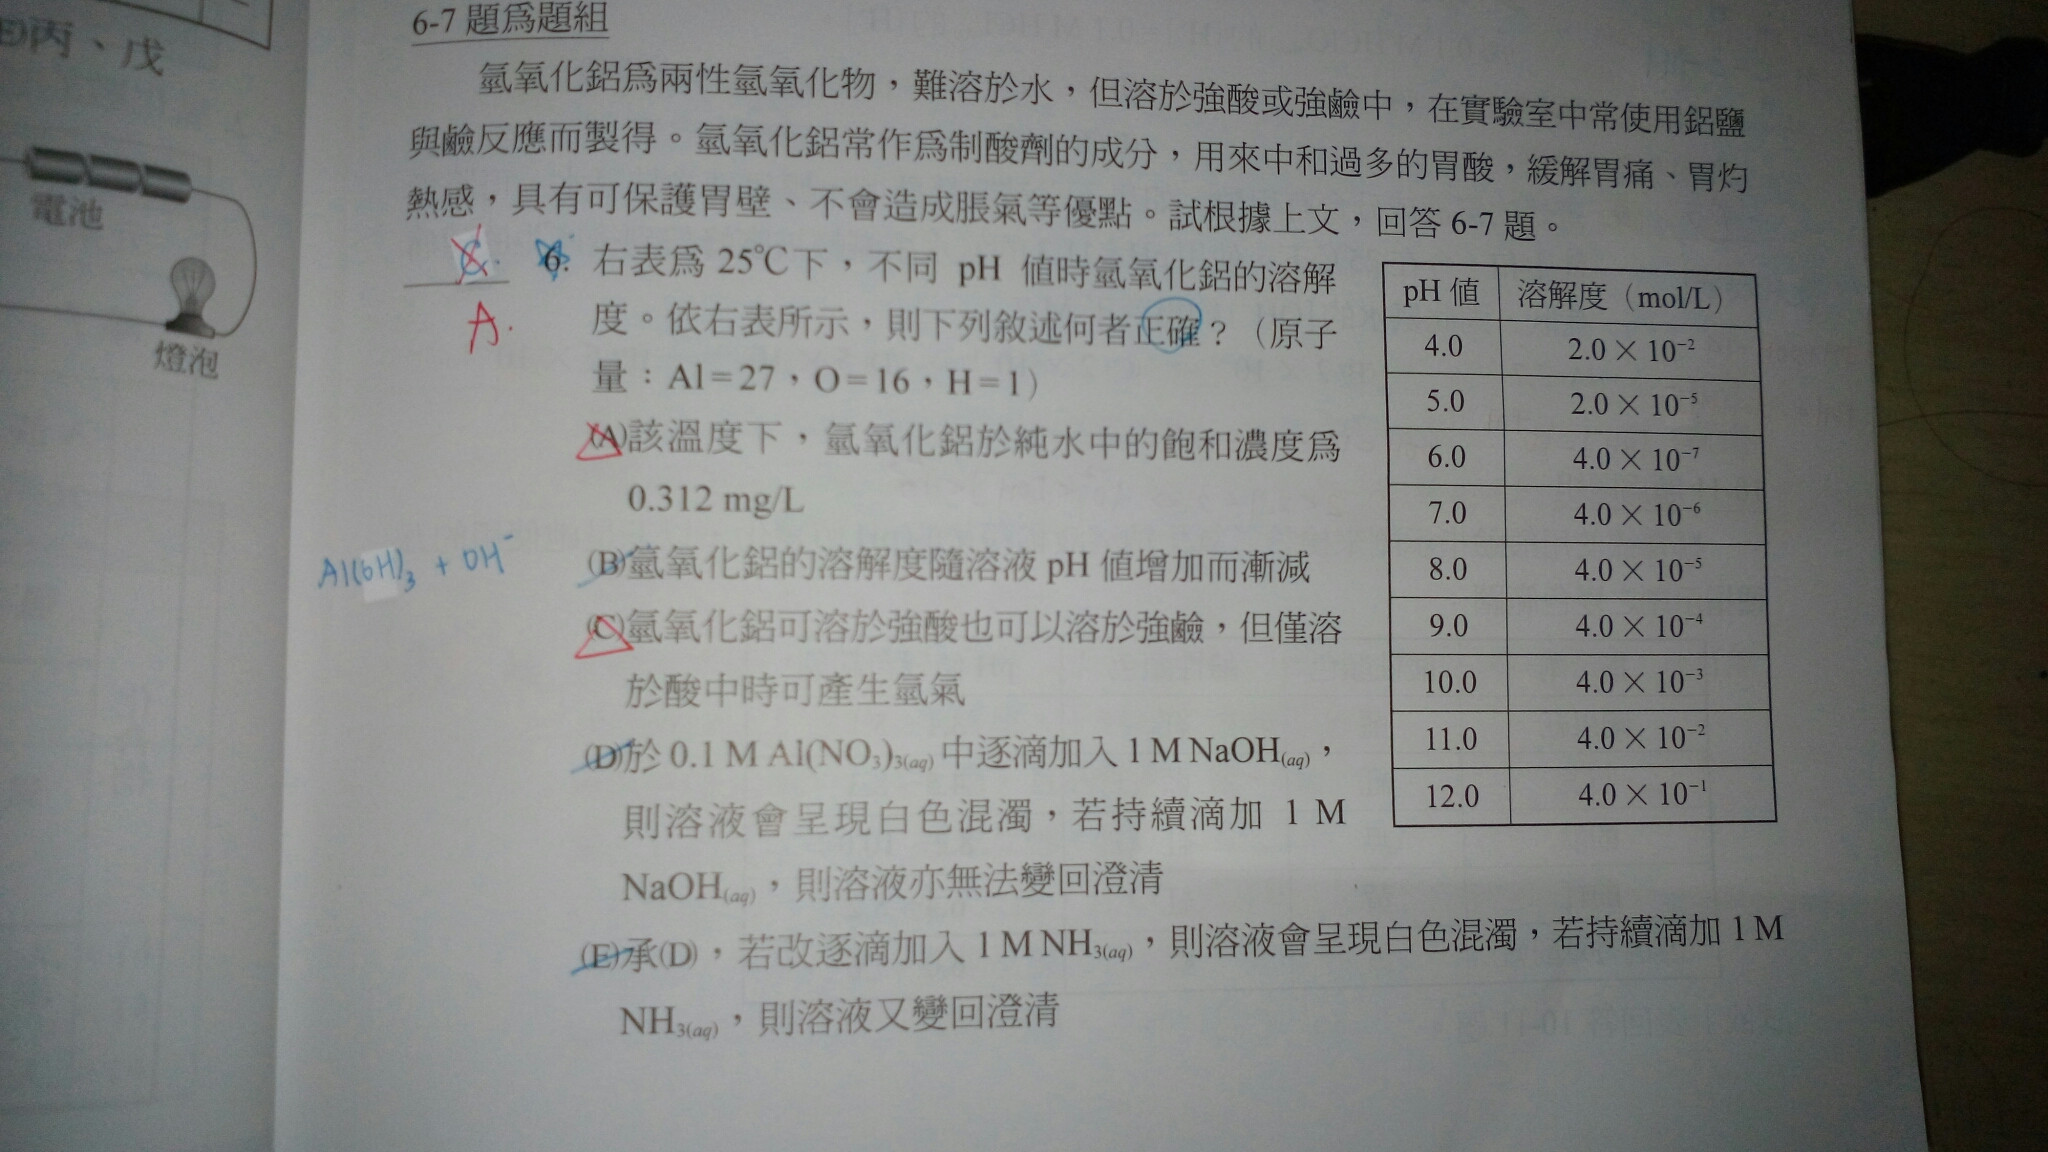 丙、戊
電池
燈泡
6-7 題為題組
氫氧化鋁為兩性氫氧化物，難溶於水，但溶於強酸或強鹼中，在實驗室中常使用鋁鹽
與鹼反應而製得。氫氧化鋁常作為制酸劑的成分，用來中和過多的胃酸，緩解胃痛、胃灼
熱感，具有可保護胃壁、不會造成脹氣等優點。試根據上文，回答 6-7 題。
C.
A.
6. 右表為 25℃下，不同 pH 值時氫氧化鋁的溶解
度。依右表所示，則下列敘述何者正確？（原子
量：Al＝27，O＝16，H＝1）
(A)該溫度下，氫氧化鋁於純水中的飽和濃度為
0.312 mg/L
Al(OH)₃ + OH⁻
(B)氫氧化鋁的溶解度隨溶液 pH 值增加而漸減
(C)氫氧化鋁可溶於強酸也可以溶於強鹼，但僅溶
於酸中時可產生氫氣
(D)於 0.1 M Al(NO₃)₃(aq) 中逐滴加入 1 M NaOH(aq)，
則溶液會呈現白色混濁，若持續滴加 1 M
NaOH(aq)，則溶液亦無法變回澄清
(E)承(D)，若改逐滴加入 1 M NH₃(aq)，則溶液會呈現白色混濁，若持續滴加 1 M
NH₃(aq)，則溶液又變回澄清
pH 值 溶解度（mol/L）
4.0 2.0 × 10⁻²
5.0 2.0 × 10⁻⁵
6.0 4.0 × 10⁻⁷
7.0 4.0 × 10⁻⁶
8.0 4.0 × 10⁻⁵
9.0 4.0 × 10⁻⁴
10.0 4.0 × 10⁻³
11.0 4.0 × 10⁻²
12.0 4.0 × 10⁻¹